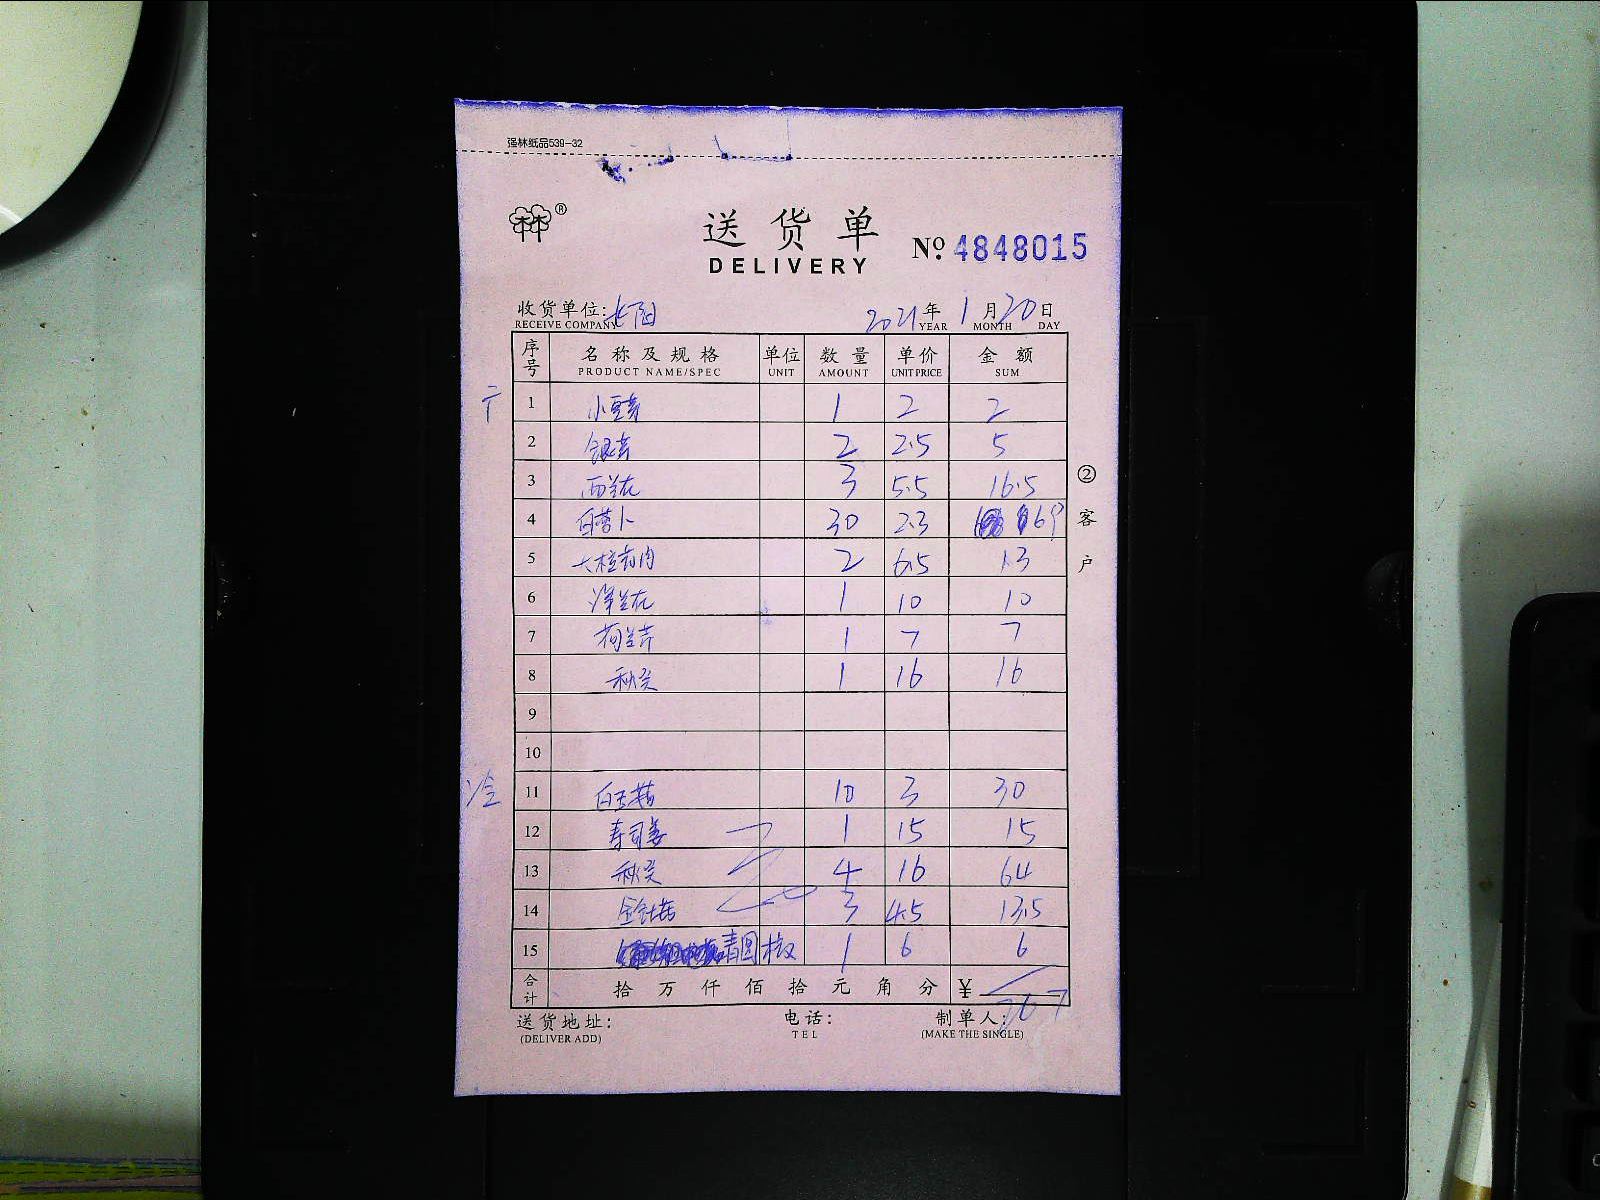 强林纸品539-32
林林®
送货单
DELIVERY
№ 4848015
收货单位: 2021年1月20日
RECEIVE COMPANY YEAR MONTH DAY
序号 名称及规格 单位 数量 单价 金额
PRODUCT NAME/SPEC UNIT AMOUNT UNIT PRICE SUM
1 小豆苗 1 2 2
2 银芽 2 2.5 5
3 西兰花 3 5.5 16.5
4 白萝卜 30 2.3 69
5 2 6.5 13
6 1 10 10
7 荷兰芹 1 7 7
8 秋葵 1 16 16
9
10
冷
11 白玉菇 10 3 30
12 寿司姜 1 15 15
13 秋葵 4 16 64
14 金针菇 3 4.5 13.5
15 青圆椒 1 6 6
合计 拾万仟佰拾元角分 ¥ 267
送货地址: 电话: 制单人:
(DELIVER ADD) TEL (MAKE THE SINGLE)
②客户